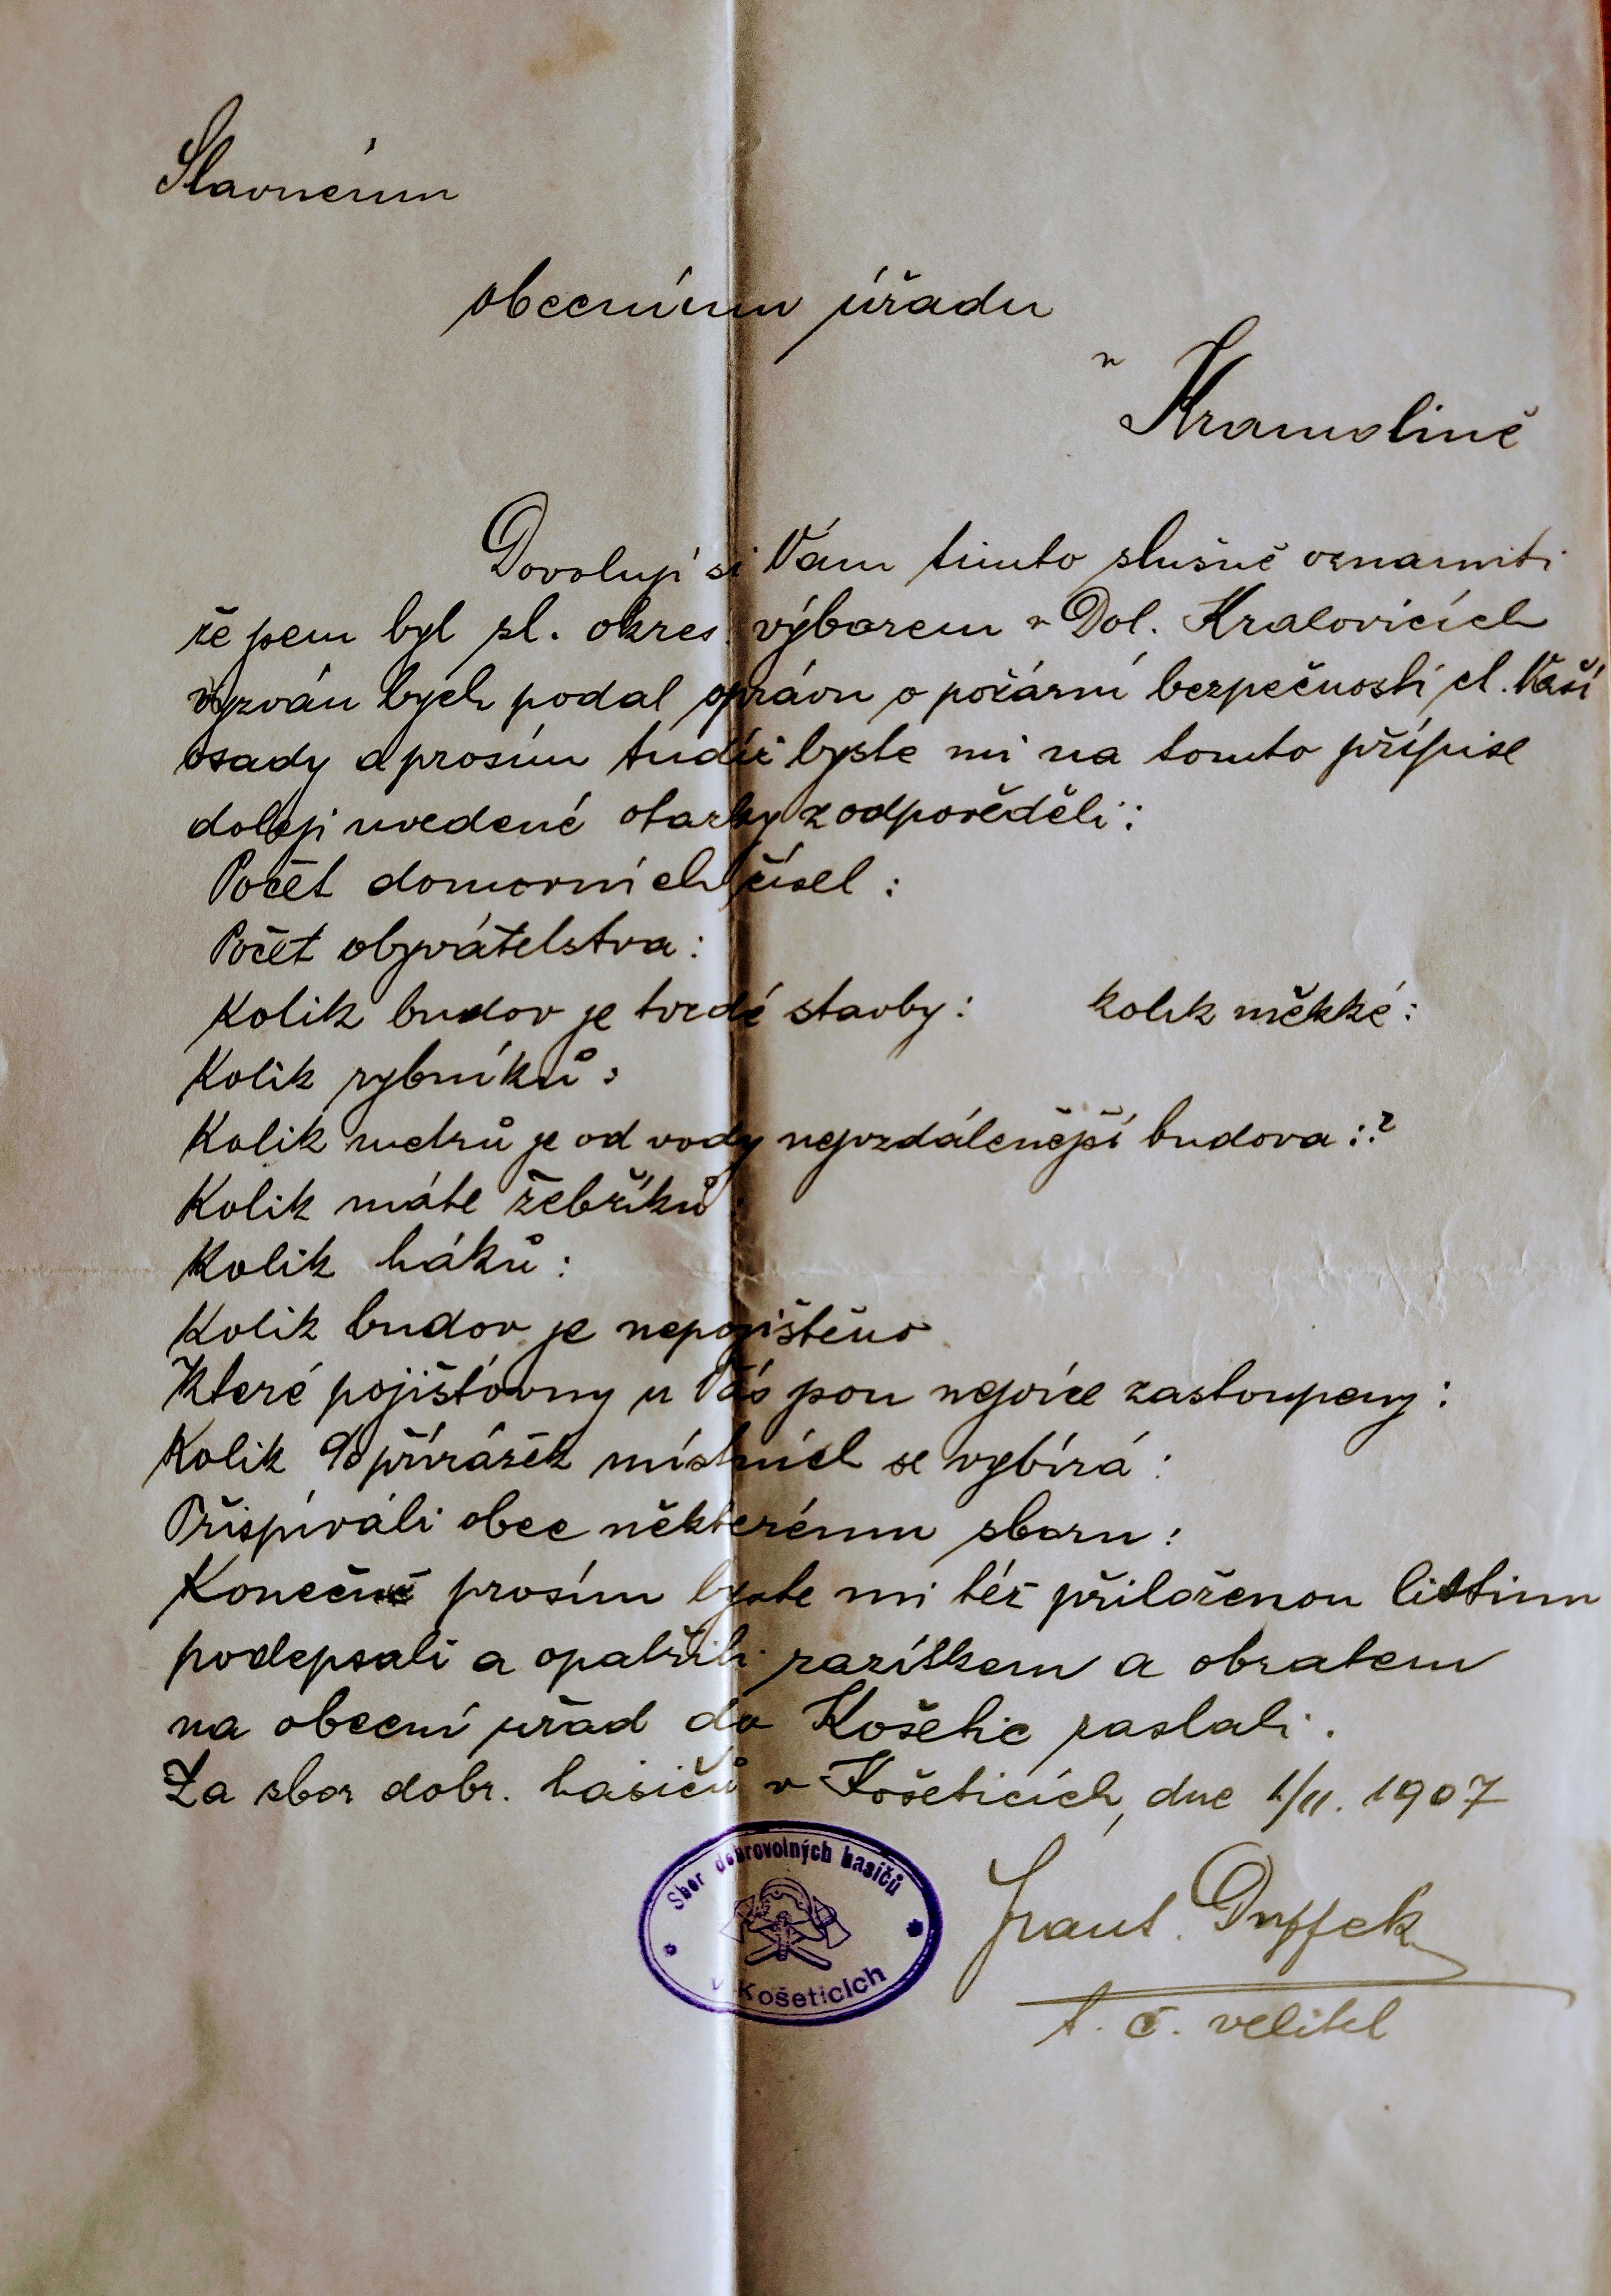 Slavnému
obecnímu úřadu
v
Kramolíně
Dovoluji si Vám tímto slušně oznámiti
že jsem byl sl. okres. výborem v Dol. Kralovicích
vyzván bych podal zprávu o požární bezpečnosti ct. Vaší
osady a prosím tudíž byste mi na tomto přípise
doleji uvedené otazky zodpověděli:
Počet domovních čísel :
Počet obyvátelstva :
Kolik budov je tvrdé stavby : kolik měkké :
Kolik rybníků :
Kolik metrů je od vody nejvzdálenější budova : ?
Kolik máte žebříků :
Kolik háků :
Kolik budov je nepojištěno
Které pojišťovny u Vás jsou nejvíce zastoupeny :
Kolik % přirážek místních se vybírá :
Přispíváli obec některému sboru :
Konečně prosím byste mi též přiloženou listinu
podepsali a opatřili razítkem a obratem
na obecní úřad do Košetic zaslali.
Za sbor dobr. hasičů v Košeticích, dne 1/II. 1907
Sbor dobrovolných hasičů
v Košeticích
Frant. Duffek
t. č. velitel